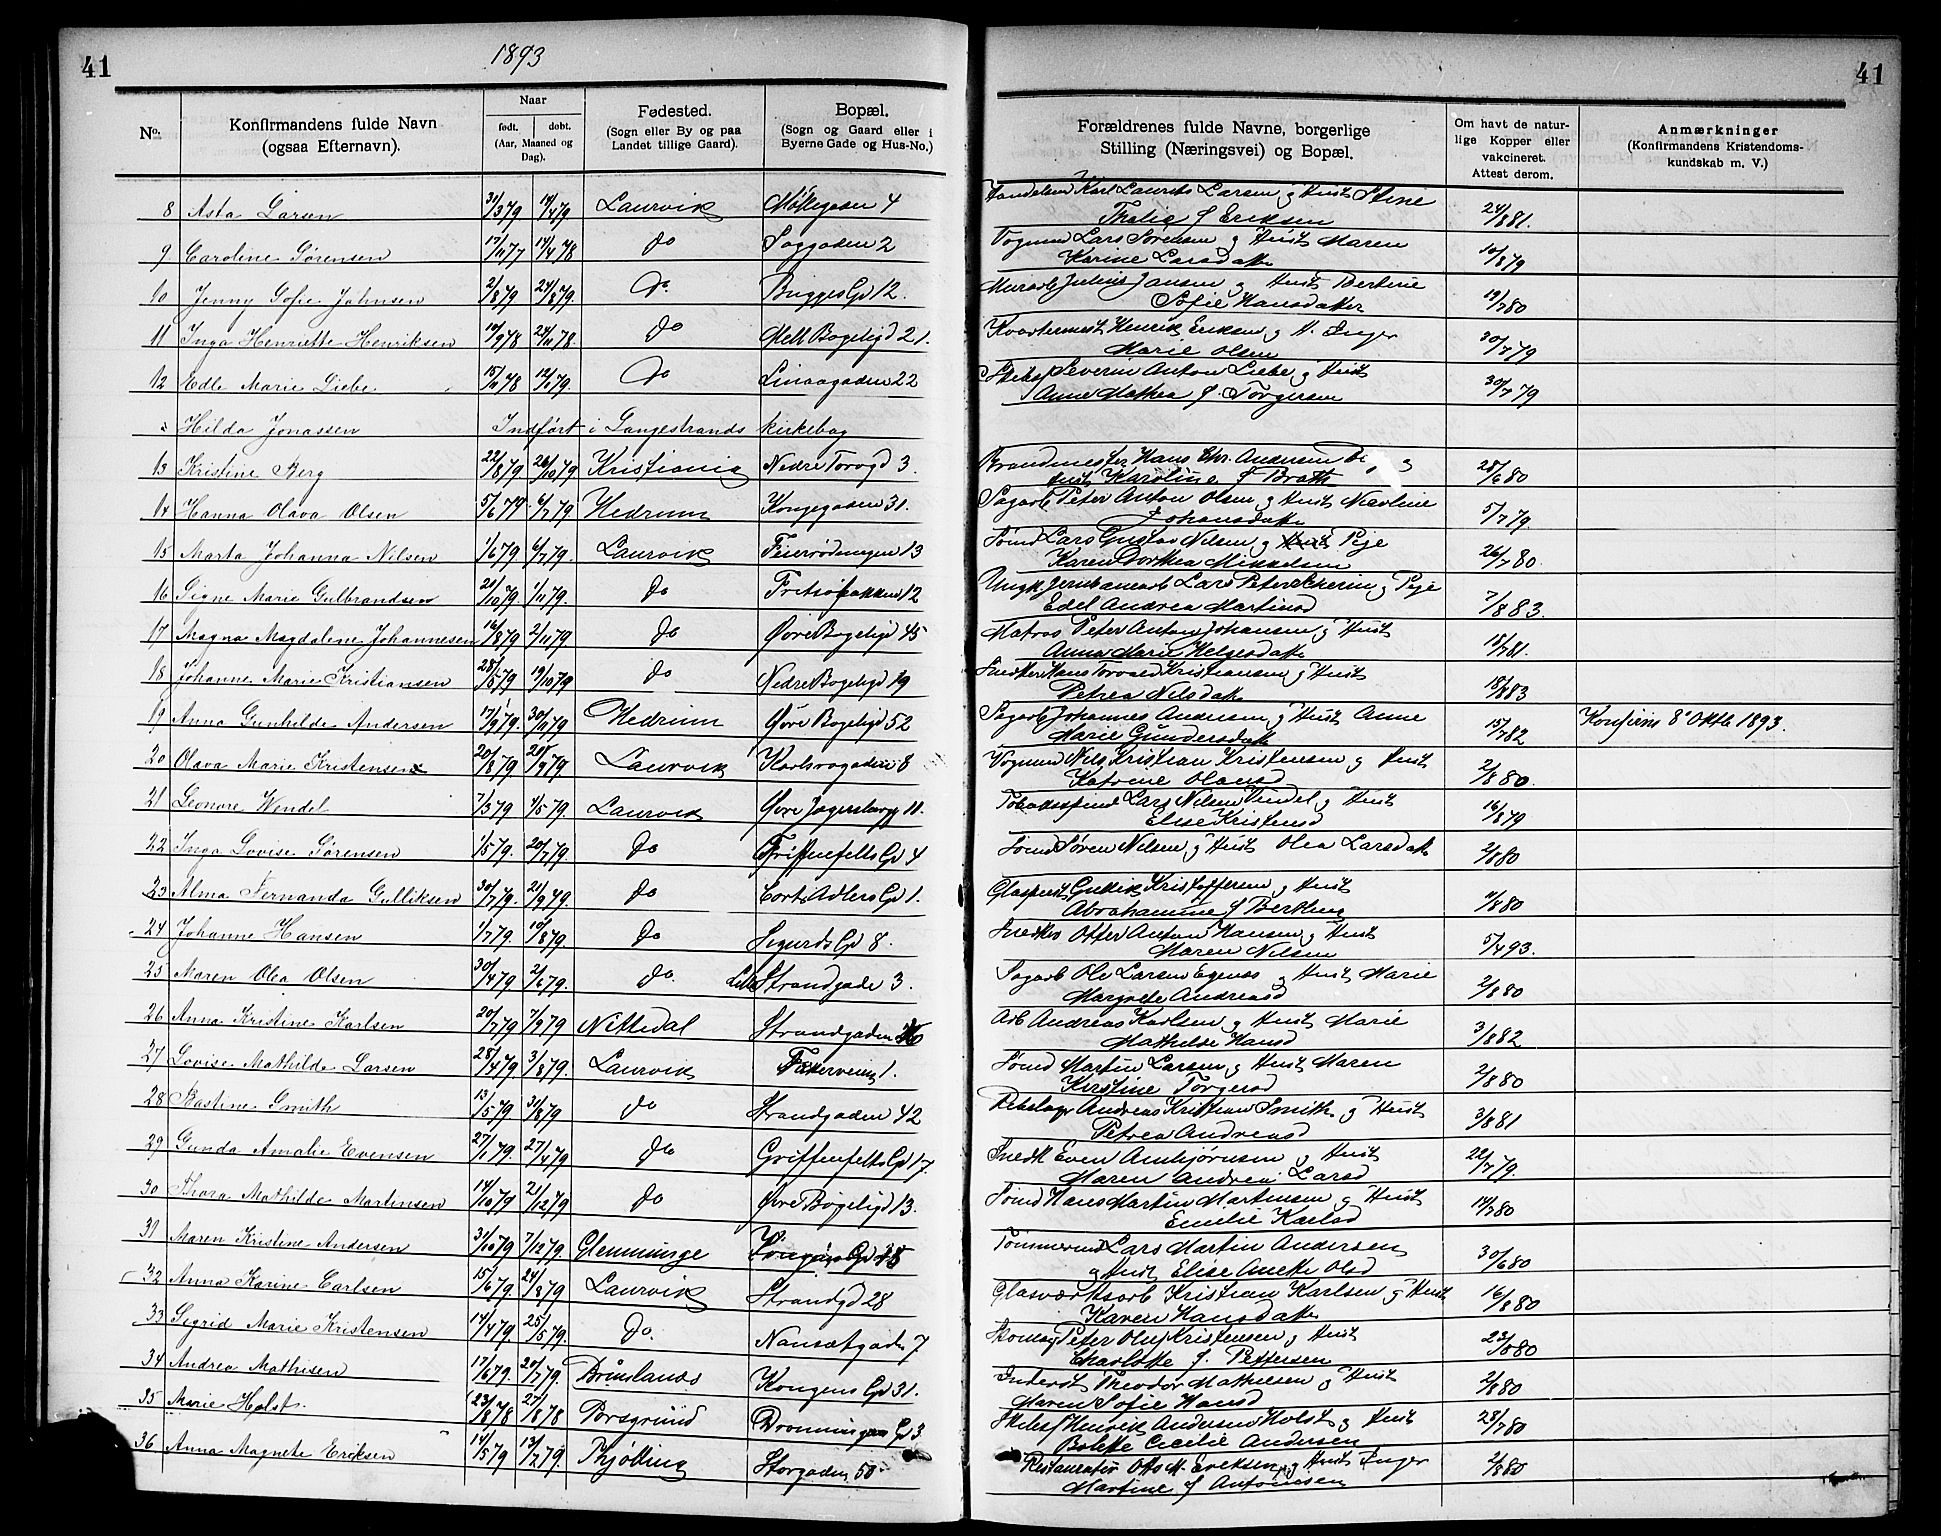 41
1893
41
No.
Konfirmandens fulde Navn
(ogsaa Efternavn).
Naar
født.
døbt.
(Aar, Maaned og Dag).
Fødested.
(Sogn eller By og paa
Landet tillige Gaard).
Bopæl.
(Sogn og Gaard eller i
Byerne Gade og Hus-No.)
Forældrenes fulde Navne, borgerlige
Stilling (Næringsvei) og Bopæl.
Om havt de natur-
lige Kopper eller
vakcineret.
Attest derom.
Anmærkninger
(Konfirmandens Kristendoms-
kundskab m. V.)
8 Asta Larsen 31/3 79 14/4 79 Laurvik Møllegaden 4 Karl Laurits Larsen og Hust Stine
Thalie f Eriksen 24/8 81.
9 Caroline Sørensen 17/11 77 14/4 78 do Saggaden 2 Vogmd Lars Sørensen og Hust Maren
Karine Larsdatt 10/8 79
10 Jenny Sofie Johnsen 2/8 79 24/8 79. Do. Brigges Gd 12. Murarb Julius Jansen og Hust Bertine
Sofie Hansdatter 19/7 80
11 Inga Henriette Henriksen 10/9 78 24/11 78. do Mell Bøgeligd 21. Kvartermest Henrik Eriksen og H. Inger
Marie Olsen 30/7 79
12 Edle Marie Liebe 15/11 78 12/1 79. Do 22 Skibsf Severin Anton Liebe og Hust
Anne Mathea f. Torgersen 30/7 79
Hilda Jonassen Indført i Langestrands kirkebog
13 Kristine Berg 22/8 79 26/10 79 Kristiania Nedre Torvgd 3. Brandmester Hans Chr. Andersen
Hust Karoline f Brath 28/6 80
14 Hanna Olava Olsen 5/6 79. 6/7 79 Hedrum Kongegaden 31. Sagarb Peter Anton Olsen og Hust Nicoline
Johansdatt 5/7 79.
15 Marta Johanna Nilsen 1/6 79 6/7 79. Laurvik 13 Sømd Lars Gustav Nilsen og Pige
Karen Dorthea Mikkelsen 26/7 80.
16 Signe Marie Gulbrandsen 21/10 79 1/11 79. do Fritzøbakken 12 Lars Peter og Pige
Edel Andrea Martinsd 7/8 83.
17 Magna Magdalene Johannesen 16/8 79 2/11 79. do Øvre Bøgeligd 45 Matros Peter Anton Johansen og Hust
Anna Marie Helgesdatt 18/7 81.
18 Johanne Marie Kristiansen 28/5 79 19/10 79 do Nedre Bøgeligd 19 Snedker Hans Torvald Kristiansen og Hust
Petrea Nilsdatt 18/7 83
19 Anna Gunhilde Andersen 17/9 79. 30/11 79 Hedrum Øvre Bøgeligd 52 Sagarb Johannes Andersen og Hust Anne
Marie Gundersdatt 15/7 82 Konfirm 8 Oktb 1893.
20 Olava Marie Kristensen 20/8 79 28/9 79 Laurvik Karlsrogaden 8 Vogmd Nils Kristian Kristensen og Hust
Katrine Olausd 2/8 80.
21 Leonore Wendel 7/3 79 4/5 79. Laurvik Øvre Jegersborgg 11. Tobaksspind Lars Nilsen Vendel og Hust
Elise Kristensd 16/8 79
22 Inga Lovise Sørensen 1/5 79. 20/7 79. do Griffenfelts Gd 4 Sømd Søren Nilsen og Hust Olea Larsdatt 2/8 80
23 Alma Fernanda Gulliksen 30/7 79. 21/9 79. do Cort Adlers Gd 1. Glaspust Gullik Kristoffersen og Hust
Abrahamine f Bertling 11/8 80
24 Johanne Hansen 1/7 79. 10/8 79. do Sigurds Gd 8. Snedker Otter Anton Hansen og Hust
Maren Nilsen 5/4 93.
25 Maren Olea Olsen 30/4 79 2/6 79. do. Lille Strandgade 3. Sagarb Ole Larsen Egenæs og Hust Marie
Margrete Andreasd 2/8 80
26 Anna Kristine Karlsen 20/7 79 7/9 79 Nittedal Strandgaden Arb Andreas Karlsen og Hust Marie
Mathilde Hansd 3/8 82
27 Lovise Mathilde Larsen 28/4 79. 3/8 79. Laurvik 1. Sømd Martin Larsen og Hust Maren
Kirstine Torgersd 2/8 80
28 Bastine Smith 13/5 79. 31/8 79. do Strandgaden 42 Rebslager Andreas Kristian Smith og Hust
Petrea Andreasd 3/8 81
29 Gunda Amalie Evensen 27/1 79. 27/4 79 do Griffenfelts Gd 17. Snedk Even Arnbjørnsen og Hust
Maren Andrea Larsd 22/7 79.
30 Thora Mathilde Martinsen 14/10 79 21/12 79 do Øvre Bøgeligd 13. Sømd Hans Martin Martinsen og Hust
Emilie Karlsd 14/7 80
31 Maren Kristine Andersen 31/10 79 7/12 79. Glemminge Tømmermd Lars Martin Andersen
og Hust Elise Anette Olsd 30/6 80
32 Anna Karine Carlsen 15/6 79. 24/8 79 Laurvik Strandgd 28 Glasværksarb Kristian Karlsen og Hust
Karen Hansdatt 16/8 80
33 Sigrid Marie Kristensen 14/4 79. 25/5 79. Do. Nansetgade 7 Skomag Peter Oluf Kristensen og Hust
Charlotte f. Pettersen 23/8 80
34 Andrea Mathisen 17/6 79. 20/7 79. Brunlanæs Kongens Gd 31. Inderst Theodor Mathisen og Hust
Maren Sofie Hansd 2/8 80
35 Marie Holst. 23/8 78 27/8 78 Porsgrund Dronningens Gd 3 Skibsf Henrik Andersen Holst og Hust
Bolette Cecilie Andersen 28/7 80
36 Anna Magnete Eriksen 14/5 79 13/7 79. Thjølling Storgaden 50 Restauratør Otto M. Eriksen og Hust Inger
Martine f Antonisen 2/8 80